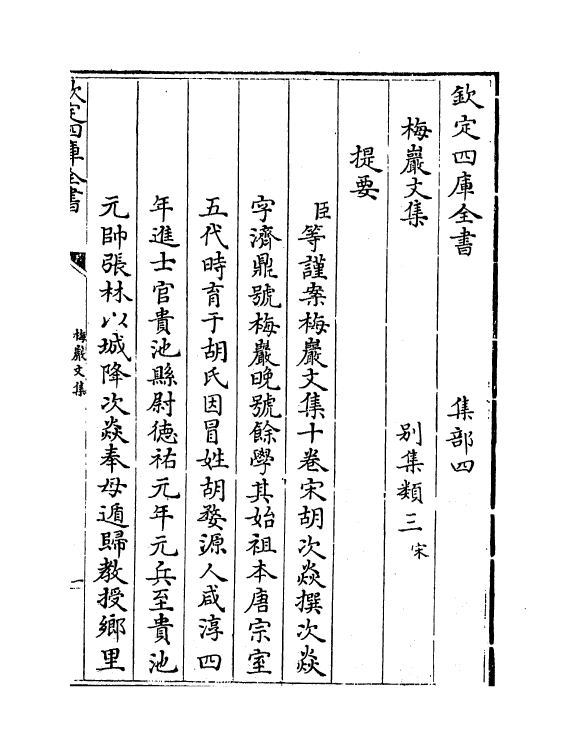 欽定四庫全書　集部四
梅巖文集　别集類三宋
提要
臣等謹案梅巖文集十卷宋胡次焱撰次焱
字濟鼎號梅巖晚號餘學其始祖本唐宗室
五代時育于胡氏因冒姓胡婺源人咸淳四
年進士官貴池縣尉德祐元年元兵至貴池
元帥張林以城降次焱奉母遁歸教授鄉里
欽定四庫全書　梅巖文集　一